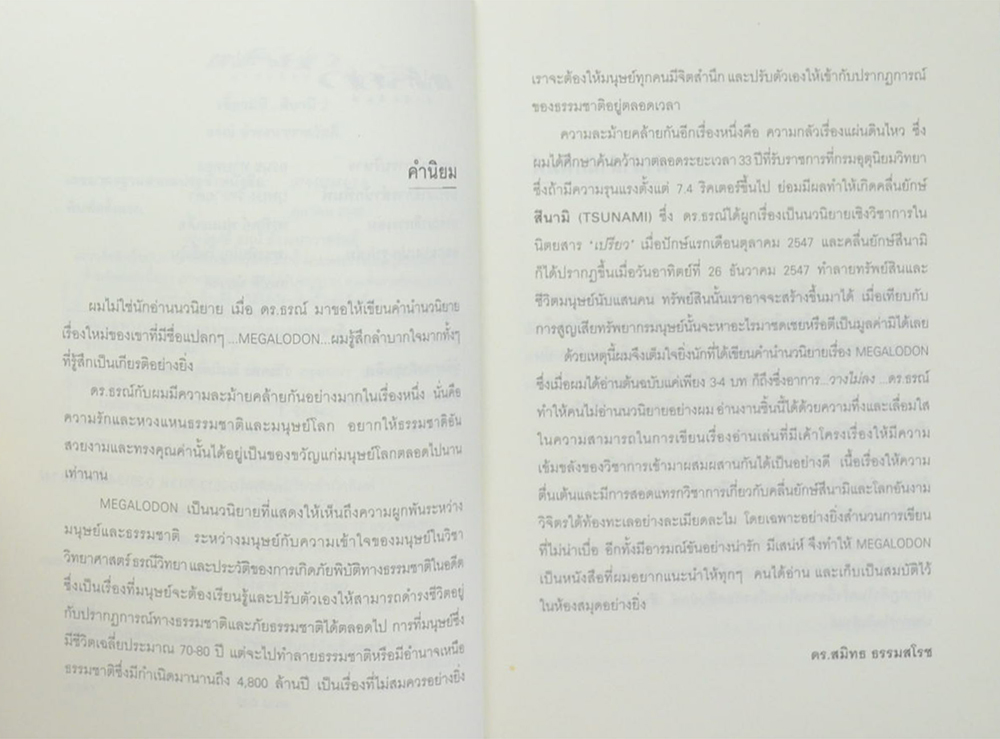 คำนิยม
ผมไม่ใช่นักอ่านนวนิยาย เมื่อ ดร.ธรณ์ มาขอให้เขียนคำนำนวนิยาย
เรื่องใหม่ของเขาที่มีชื่อแปลกๆ ...MEGALODON...ผมรู้สึกลำบากใจมากทั้งๆ
ที่รู้สึกเป็นเกียรติอย่างยิ่ง
ดร.ธรณ์กับผมมีความละม้ายคล้ายกันอย่างมากในเรื่องหนึ่ง นั่นคือ
ความรักและหวงแหนธรรมชาติและมนุษย์โลก อยากให้ธรรมชาติอัน
สวยงามและทรงคุณค่านั้นได้อยู่เป็นของขวัญแก่มนุษย์โลกตลอดไปนาน
เท่านาน
MEGALODON เป็นนวนิยายที่แสดงให้เห็นถึงความผูกพันระหว่าง
มนุษย์และธรรมชาติ ระหว่างมนุษย์กับความเข้าใจของมนุษย์ในวิชา
วิทยาศาสตร์ ธรณีวิทยา และประวัติของการเกิดภัยพิบัติทางธรรมชาติในอดีต
ซึ่งเป็นเรื่องที่มนุษย์จะต้องเรียนรู้และปรับตัวเองให้สามารถดำรงชีวิตอยู่
กับปรากฏการณ์ทางธรรมชาติและภัยธรรมชาติได้ตลอดไป การที่มนุษย์ซึ่ง
มีชีวิตเฉลี่ยประมาณ 70-80 ปี แต่จะไปทำลายธรรมชาติหรือมีอำนาจเหนือ
ธรรมชาติซึ่งมีกำเนิดมานานถึง 4,800 ล้านปี เป็นเรื่องที่ไม่สมควรอย่างยิ่ง
เราจะต้องให้มนุษย์ทุกคนมีจิตสำนึก และปรับตัวเองให้เข้ากับปรากฏการณ์
ของธรรมชาติอยู่ตลอดเวลา
ความละม้ายคล้ายกันอีกเรื่องหนึ่งคือ ความกลัวเรื่องแผ่นดินไหว ซึ่ง
ผมได้ศึกษาค้นคว้ามาตลอดระยะเวลา 33 ปีที่รับราชการที่กรมอุตุนิยมวิทยา
ซึ่งถ้ามีความรุนแรงตั้งแต่ 7.4 ริคเตอร์ขึ้นไป ย่อมมีผลทำให้เกิดคลื่นยักษ์
สึนามิ (TSUNAMI) ซึ่ง ดร.ธรณ์ได้ผูกเรื่องเป็นนวนิยายเชิงวิชาการใน
นิตยสาร 'เปรียว' เมื่อปักษ์แรกเดือนตุลาคม 2547 และคลื่นยักษ์สึนามิ
ก็ได้ปรากฏขึ้นเมื่อวันอาทิตย์ที่ 26 ธันวาคม 2547 ทำลายทรัพย์สินและ
ชีวิตมนุษย์นับแสนคน ทรัพย์สินนั้นเราอาจจะสร้างขึ้นมาได้ เมื่อเทียบกับ
การสูญเสียทรัพยากรมนุษย์นั้นจะหาอะไรมาชดเชยหรือตีเป็นมูลค่ามิได้เลย
ด้วยเหตุนี้ผมจึงเต็มใจยิ่งนักที่ได้เขียนคำนำนวนิยายเรื่อง MEGALODON
ซึ่งเมื่อผมได้อ่านต้นฉบับแค่เพียง 3-4 บท ก็ถึงซึ่งอาการ...วางไม่ลง ...ดร.ธรณ์
ทำให้คนไม่อ่านนวนิยายอย่างผม อ่านงานชิ้นนี้ได้ด้วยความทึ่งและเลื่อมใส
ในความสามารถในการเขียนเรื่องอ่านเล่นที่มีเค้าโครงเรื่องให้มีความ
เข้มขลังของวิชาการเข้ามาผสมผสานกันได้เป็นอย่างดี เนื้อเรื่องให้ความ
ตื่นเต้นและมีการสอดแทรกวิชาการเกี่ยวกับคลื่นยักษ์สึนามิและโลกอันงาม
วิจิตรใต้ท้องทะเลอย่างละเมียดละไม โดยเฉพาะอย่างยิ่งสำนวนการเขียน
ที่ไม่น่าเบื่อ อีกทั้งมีอารมณ์ขันอย่างน่ารัก มีเสน่ห์ จึงทำให้ MEGALODON
เป็นหนังสือที่ผมอยากแนะนำให้ทุกๆ คนได้อ่าน และเก็บเป็นสมบัติไว้
ในห้องสมุดอย่างยิ่ง
ดร.สมิทธ ธรรมสโรช